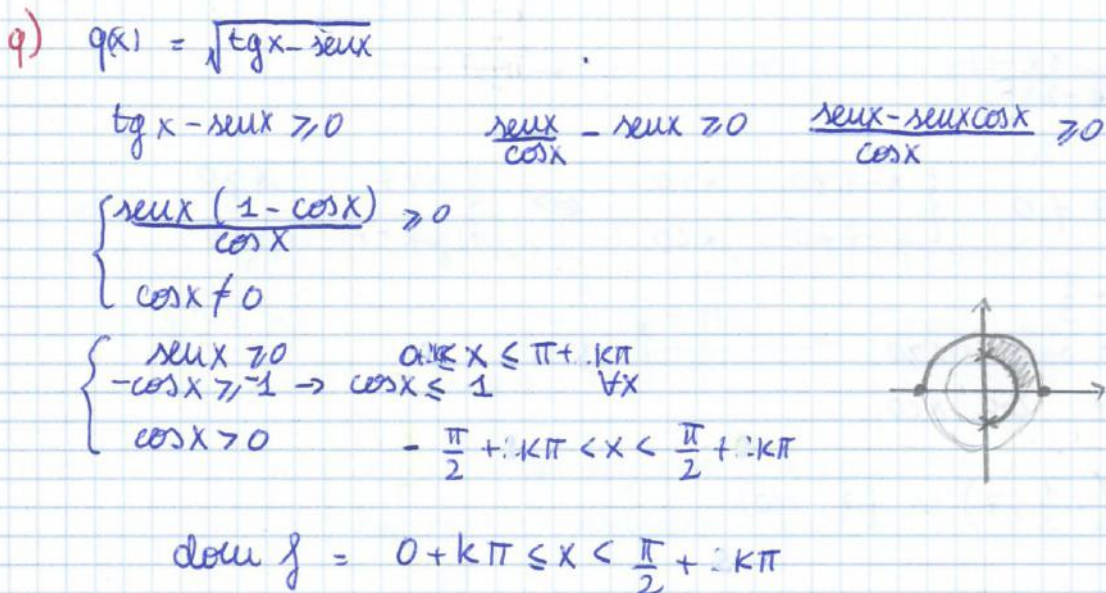 q) q(x) = √(tgx - senx)
tgx - senx ≥ 0   senx/cosx - senx ≥ 0   (senx - senxcosx)/cosx ≥ 0
{ senx (1 - cosx)/cosx ≥ 0
cosx ≠ 0
{ senx ≥ 0   0 ≤ x ≤ π + kπ
-cosx ≥ -1 → cosx ≤ 1   ∀x
cosx > 0   - π/2 + kπ < x < π/2 + kπ
dom f = 0 + kπ ≤ x < π/2 + kπ